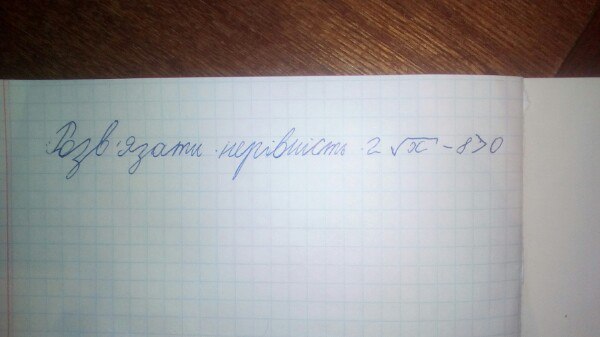 Розв'язати нерівність 2√x - 8>0